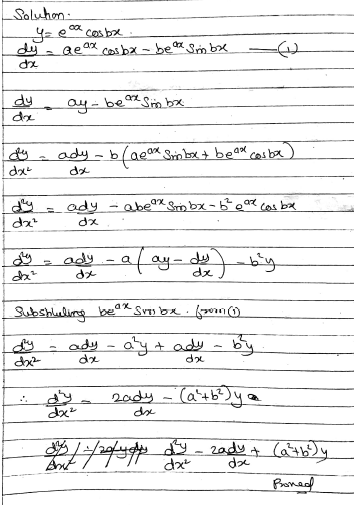 Solution.
y = e^ax cos bx.
dy/dx = ae^ax cos bx - be^ax Sin bx —(1)
dy/dx = ay - be^ax Sin bx
d²y/dx² = ady/dx - b(ae^ax Sin bx + be^ax cos bx)
d²y/dx² = ady/dx - abe^ax Sin bx - b²e^ax cos bx
d²y/dx² = ady/dx - a(ay - dy/dx) - b²y
Substituting be^ax Sin bx. from (1)
d²y/dx² = ady/dx - a²y + ady/dx - b²y
∴ d²y/dx² = 2ady/dx - (a²+b²)y
d²y/dx² - 2ady/dx + (a²+b²)y
Proved